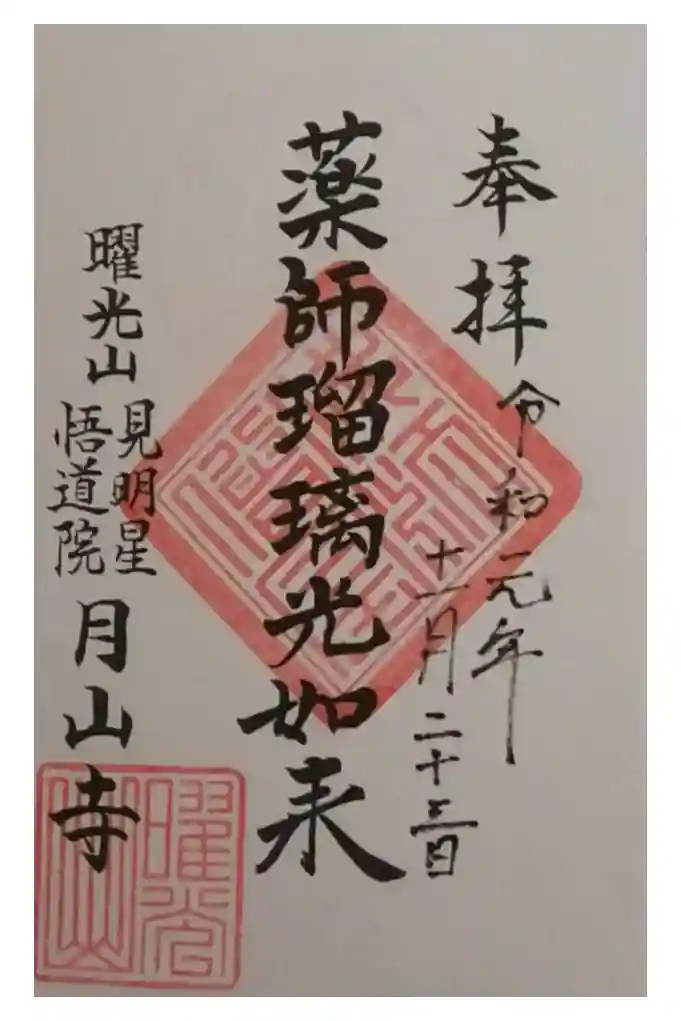 奉拝
令和元年
十一月二十三日
薬師瑠璃光如来
曜光山
見明星
悟道院
月山寺
曜光